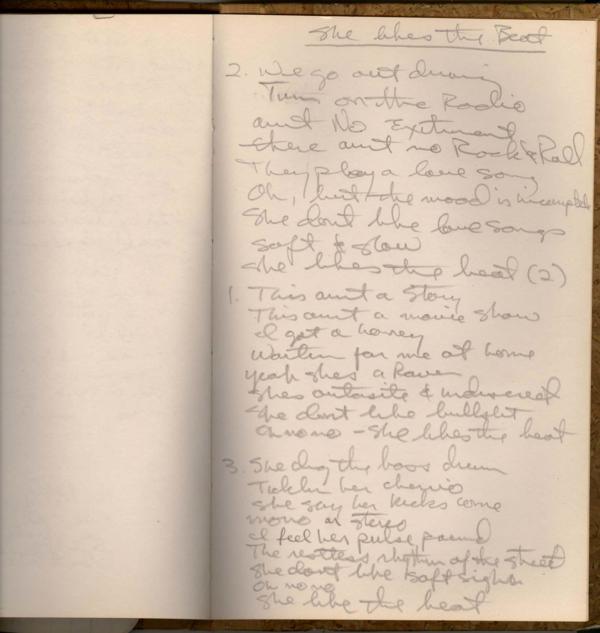 She likes the Beat
2. We go out driving
Turn on the Radio
aint No Exitment
there aint no Rock & Roll
They play a love song
Oh, but the mood is incomplete
She dont like love songs
soft & slow
she likes the beat (2)
1. This aint a Story
This aint a movie show
I got a honey
Waitin for me at home
yeah shes a Raver
shes outasite & indiscreet
She dont like bullshit
Oh no no - She likes the beat
3. She dig the bass drum
Ticklin her cherrio
She say her kicks come
mono or stereo
I feel her pulse pound
The restless rhythm of the street
She dont like soft sighs
Oh no no
She like the beat